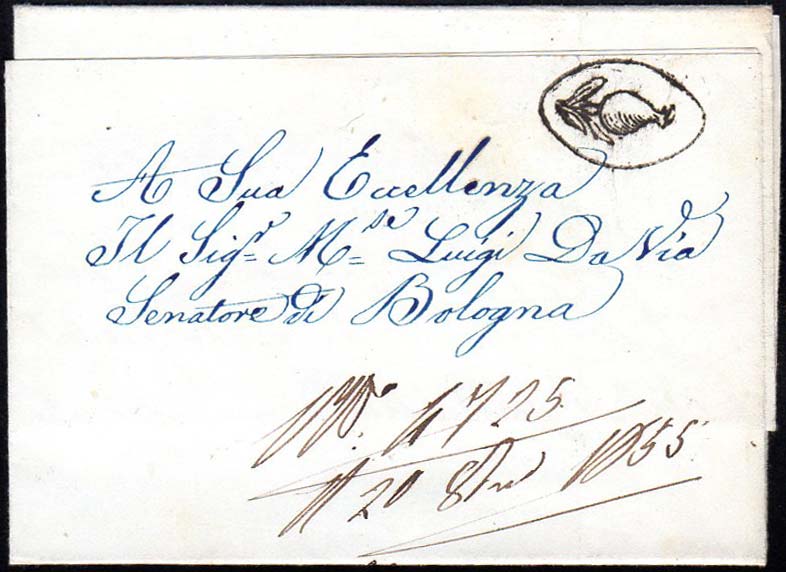 A Sua Eccellenza
Il Sigr= Mse= Luigi Da Via
Senatore di Bologna
No. 4725
20 8bre 1855